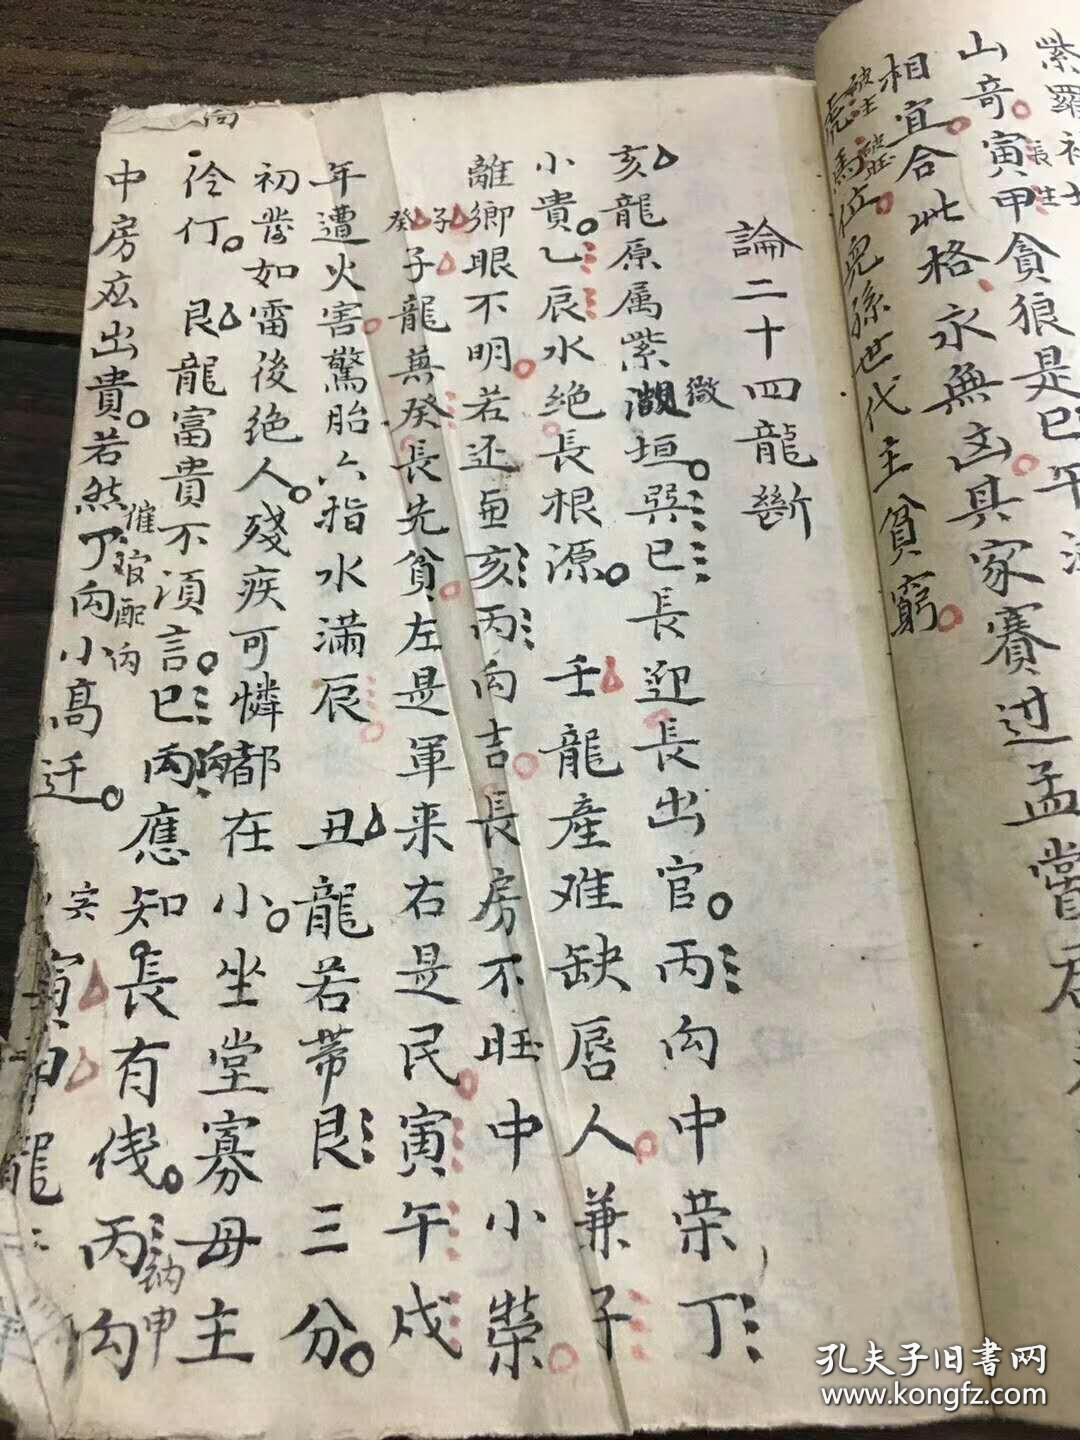 紫羅袍
長生
山奇寅甲貪狼是巳午
相宜合此格永無凶具家賽过孟嘗君
破旺 破旺
虎馬位児孫世代主貧窮
論二十四龍斷
亥龍原属紫微垣巽巳長迎長出官丙向中荣丁
小貴乙辰水绝長根源 壬龍產难缺唇人兼子
離鄉眼不明若还亜亥丙向吉長房不旺中小榮
癸子
子龍兼癸長先貧左是軍来右是民寅午戌
年遭火害驚胎六指水满辰 丑龍若带艮三分
初發如雷後绝人殘疾可憐都在小坐堂寡母主
向
伶仃 艮龍富貴不須言巳丙應知長有伐丙向
納申
催官配向
中房应出貴若然丁向小高迁 寅甲龍
孔夫子旧書网
www.kongfz.com